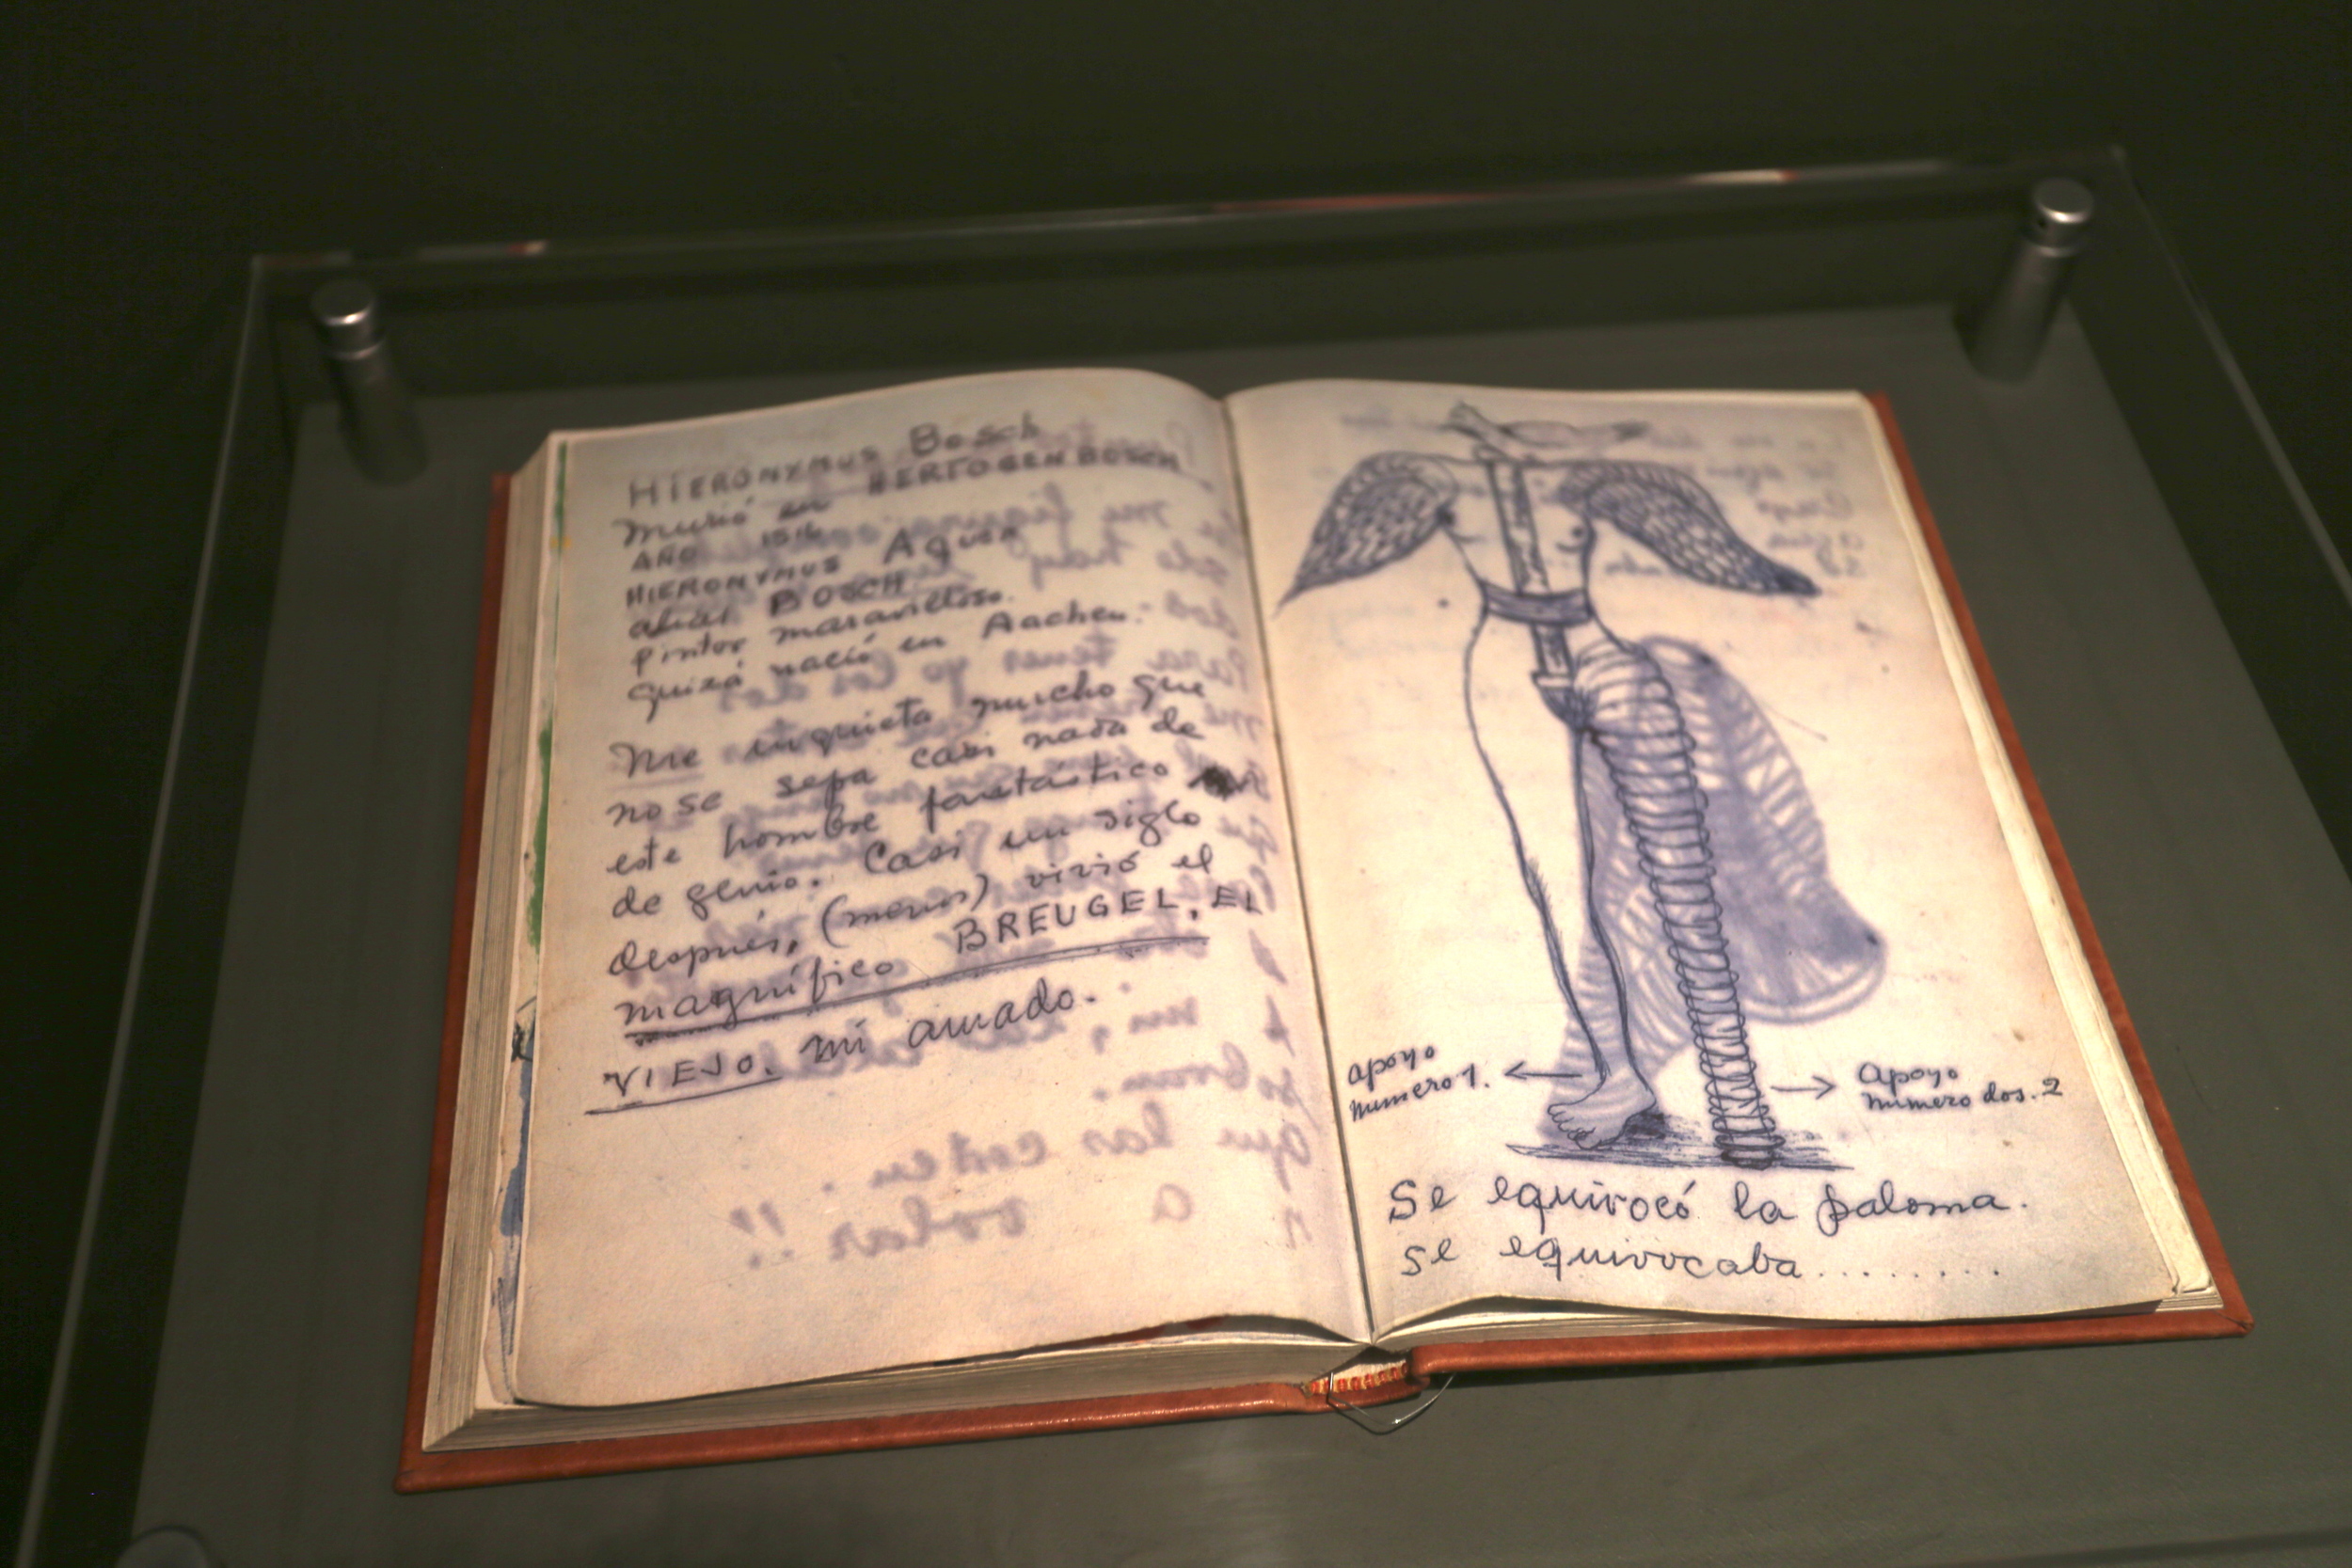 HIERONYMUS Bosch
murió en HERTOGENBOSCH
AÑO 1516
HIERONYMUS Aquen
alias BOSCH
pintor maravilloso.
quizá nació en Aachen.
Me inquieta mucho que
no se sepa casi nada de
este hombre fantástico
de genio. Casi un siglo
después, (menos) vivió el
magnífico BREUGEL, EL
VIEJO, mi amado.
apoyo
numero 1.
apoyo
numero dos. 2
Se equivocó la paloma.
se equivocaba........